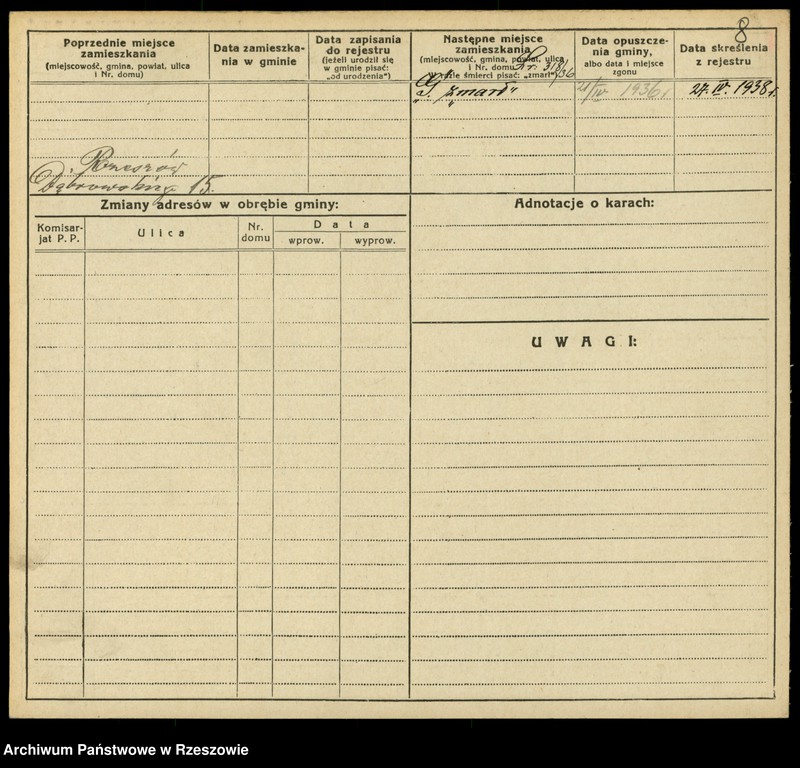 8
Poprzednie miejsce
zamieszkania
(miejscowość, gmina, powiat, ulica
i Nr. domu)
Data zamieszka-
nia w gminie
Data zapisania
do rejestru
(jeżeli urodził się
w gminie pisać:
„od urodzenia”)
Następne miejsce
zamieszkania
(miejscowość, gmina, powiat, ulica
i Nr. domu
w razie śmierci pisać: „zmarł”)
Nr. 318/36
Data opuszcze-
nia gminy,
albo data i miejsce
zgonu
Data skreślenia
z rejestru
"zmarł"
21/IV 1936 r
27. IV. 1938 r.
Rzeszów
Dąbrowskiego 15.
Zmiany adresów w obrębie gminy:
Komisar-
jat P. P.
Ulica
Nr.
domu
Data
wprow.
wyprow.
Adnotacje o karach:
UWAGI:
Archiwum Państwowe w Rzeszowie